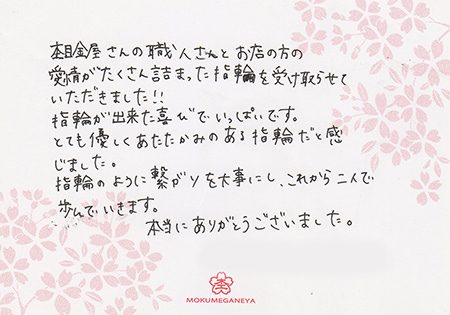 杢目金屋さんの職人さんとお店の方の
愛情がたくさん詰まった指輪を受け取らせて
いただきました!!
指輪が出来た喜びでいっぱいです。
とても優しくあたたかみのある指輪だと感
じました。
指輪のように繋がりを大事にし、これから二人で
歩んでいきます。
本当にありがとうございました。
杢
MOKUMEGANEYA